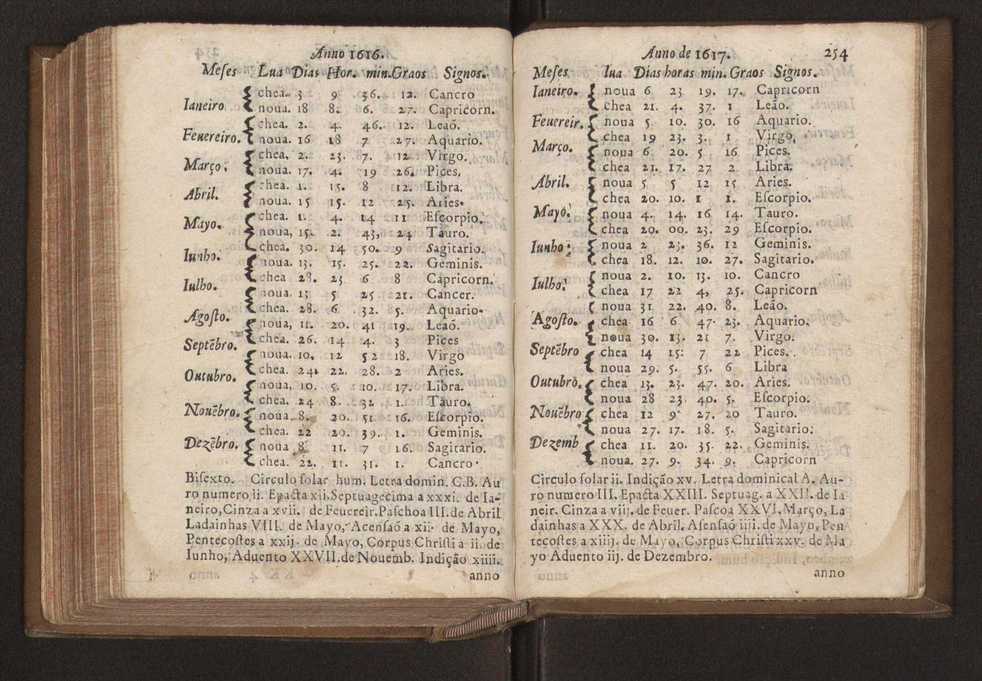 Anno 1616.
Meſes Lua Dias Hor. min. Graos Signos.
Ianeiro chea. 3 9 36. 12. Cancro
noua. 18 8. 6. 27. Capricorn.
Feuereiro. chea. 2. 4. 46. 12. Leaõ.
noua. 16 18 7 27. Aquario.
Março. chea. 2. 23. 7. 12 Virgo.
noua. 17. 4. 19 26. Piçes.
Abril. chea. 1. 15. 8 12. Libra.
noua. 15 15. 12 25. Aries.
Mayo. chea. 1. 4. 14 11 Eſcorpio.
noua, 15. 2. 43, 24 Tauro.
chea. 30. 14 50. 9 Sagitario.
Iunho. noua. 13. 15. 25. 22. Geminis.
chea 28. 23 6 8 Capricorn.
Iulho. noua. 13 5 25 21. Cancer.
chea. 28. 6 32. 5. Aquario.
Agoſto. noua, 11. 20. 41 19. Leaõ.
chea. 26. 14 4. 3 Pices
Septẽbro. noua. 10. 12 52 18. Virgo
chea. 24. 22. 28. 2 Aries.
Outubro. noua, 10. 5. 10. 17. Libra.
chea. 24 8. 32 1. Tauro.
Nouẽbro. noua. 8. 20. 51. 16. Eſcorpio.
chea. 22 20. 39. 1. Geminis.
Dezẽbro. noua 8. 11. 7 16. Sagitario.
chea. 22. 11. 31. 1. Cancro.
Biſexto. Circulo ſolar hum. Letra domin. C.B. Au
ro numero ii. Epacta xii. Septuageçima a xxxi. de Ia-
neiro, Cinza a xvii. de Feuereir. Paſchoa III. de Abril
Ladainhas VIII. de Mayo, Acenſaõ a xii. de Mayo,
Pentecoſtes a xxij. de Mayo, Corpus Chriſti a ii. de
Iunho, Aduento XXVII. de Nouemb. Indição xiiii.
anno
Anno de 1617. 254
Meſes lua Dias horas min. Graos Signos.
Ianeiro. noua 6 23 19. 17. Capricorn
chea 21. 4. 37. 1 Leão.
Feuereir. noua 5 10. 30. 16 Aquario.
chea 19 23. 3. 1 Virgo,
Março. noua 6 20. 5 16 Pices.
chea 21. 17. 27 2 Libra.
Abril. noua 5 5 12 15 Aries.
chea 20. 10. 1 1. Eſcorpio.
Mayo. noua 4. 14. 16 14. Tauro.
chea 20. 00. 23. 29 Eſcorpio.
Iunho: noua 2 23. 36. 12 Geminis.
chea 18. 12. 10. 27. Sagitario.
Iulho. noua 2. 10. 13. 10. Cancro
chea 17 22 4, 25. Capricorn
noua 31 22. 40. 8. Leão.
Agoſto. chea 16 6 47 23. Aquario.
noua 30. 13. 21 7. Virgo.
Septẽbro chea 14 15: 7 22 Pices.
noua 29. 5. 55. 6 Libra
Outubro. chea 13. 23. 47. 20. Aries.
noua 28 23 40. 5. Eſcorpio.
Nouẽbro chea 12 9 27. 20 Tauro.
noua 27. 17. 18. 5. Sagitario.
Dezemb chea 11. 20. 35. 22. Geminis.
noua. 27. 9. 34. 9. Capricorn
Circulo ſolar ii. Indição xv. Letra dominical A. Au-
ro numero III. Epacta XXIII. Septuag. a XXII. de Ia
neir. Cinza a viij. de Feuer. Paſcoa XXVI. Março, La
dainhas a XXX. de Abril. Aſenſaõ iiij. de Mayo, Pen
tecoſtes a xiiij. de Mayo, Corpus Chriſti xxv. de Ma
yo Aduento iij. de Dezembro.
anno